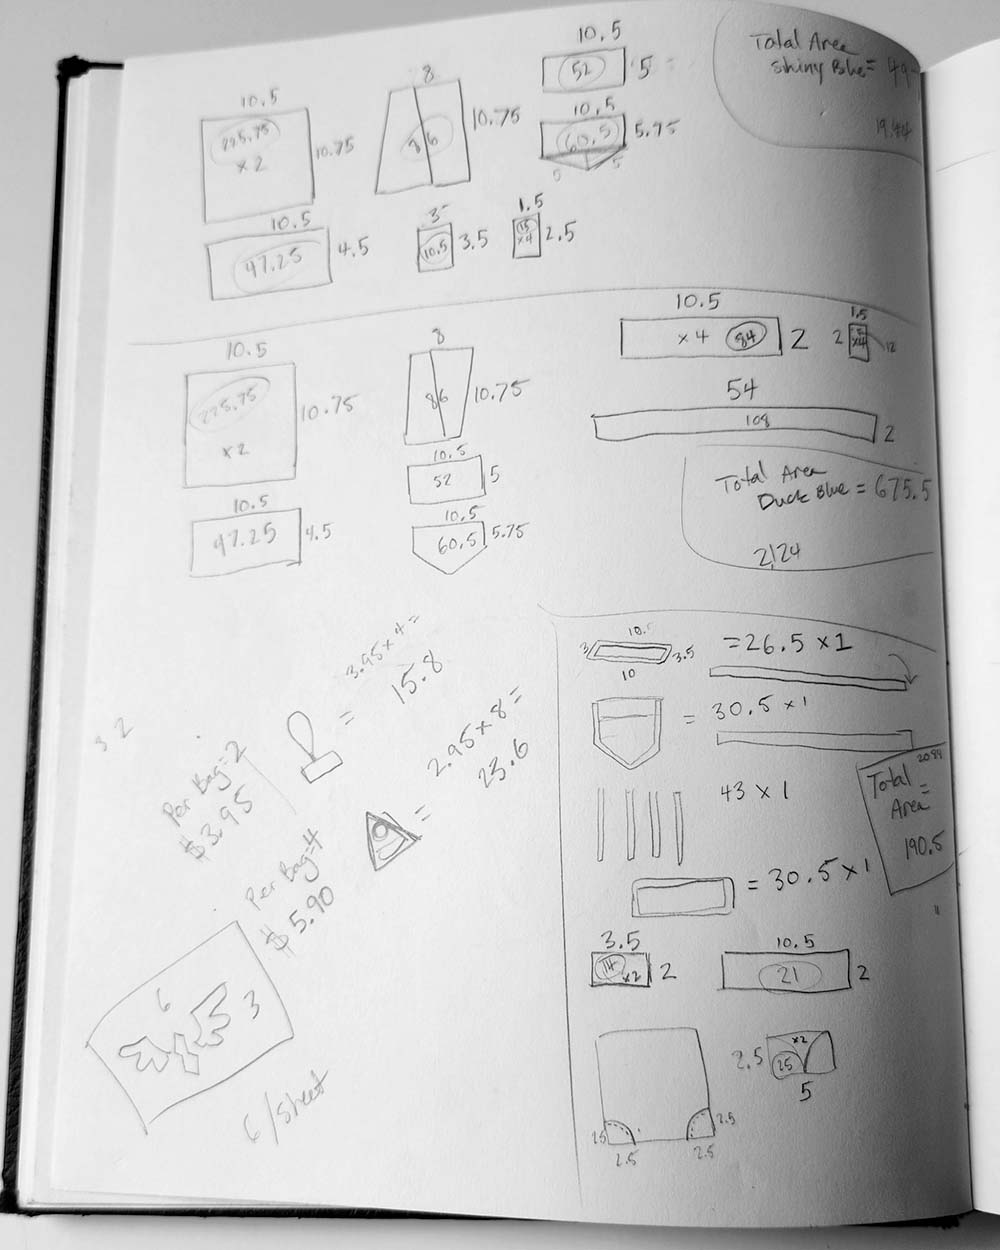 10.5
225.75
x 2
10.75
8
86
10.75
10.5
52
5
10.5
60.5
5.75
5
Total Area
Shiny Blue = 49
10.5
47.25
4.5
3
10.5
3.5
1.5
15
x4
2.5
10.5
225.75
x 2
10.75
8
86
10.75
10.5
x 4
84
2
1.5
2
x4
12
54
108
2
10.5
52
5
10.5
47.25
4.5
10.5
60.5
5.75
Total Area
Duck Blue = 675.5
2,124
3.95 x 4 =
15.8
=
2.95 x 8 =
23.6
=
Per Bag = 2
$3.95
Per Bag = 4
$5.90
6
3
6/sheet
10.5
3
3.5
10
= 26.5 x 1
= 30.5 x 1
43 x 1
= 30.5 x 1
Total
Area
=
190.5
3.5
14
x2
2
10.5
21
2
2.5
x2
25
5
2.5
2.5
2.5
2.5